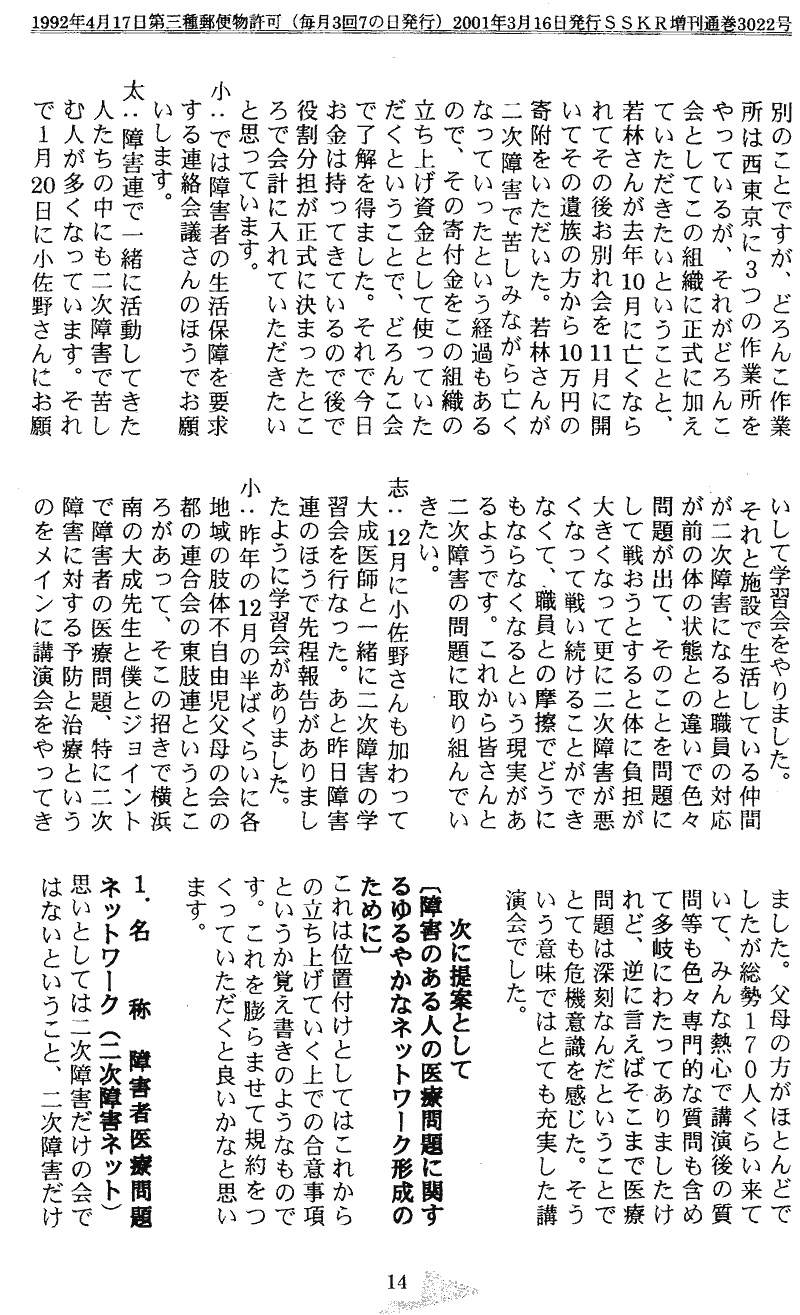 1992年4月17日第三種郵便物許可（毎月3回7の日発行）2001年3月16日発行ＳＳＫＲ増刊通巻3022号
別のことですが、どろんこ作業
所は西東京に３つの作業所を
やっているが、それがどろんこ
会としてこの組織に正式に加え
ていただきたいということと、
若林さんが去年10月に亡くなら
れてその後お別れ会を11月に開
いてその遺族の方から10万円の
寄附をいただいた。若林さんが
二次障害で苦しみながら亡く
なっていったという経過もある
ので、その寄付金をこの組織の
立ち上げ資金として使っていた
だくということで、どろんこ会
で了解を得ました。それで今日
お金は持ってきているので後で
役割分担が正式に決まったとこ
ろで会計に入れていただきたい
と思っています。
小：では障害者の生活保障を要求
する連絡会議さんのほうでお願
いします。
太：障害連で一緒に活動してきた
人たちの中にも二次障害で苦し
む人が多くなっています。それ
で１月20日に小佐野さんにお願
いして学習会をやりました。
それと施設で生活している仲間
が二次障害になると職員の対応
が前の体の状態との違いで色々
問題が出て、そのことを問題に
して戦おうとすると体に負担が
大きくなって更に二次障害が悪
くなって戦い続けることができ
なくて、職員との摩擦でどうに
もならなくなるという現実があ
るようです。これから皆さんと
二次障害の問題に取り組んでい
きたい。
志：12月に小佐野さんも加わって
大成医師と一緒に二次障害の学
習会を行なった。あと昨日障害
連のほうで先程報告がありまし
たように学習会がありました。
小：昨年の12月の半ばくらいに各
地域の肢体不自由児父母の会の
都の連合会の東肢連というとこ
ろがあって、そこの招きで横浜
南の大成先生と僕とジョイント
で障害者の医療問題、特に二次
障害に対する予防と治療という
のをメインに講演会をやってき
ました。父母の方がほとんどで
したが総勢１７０人くらい来て
いて、みんな熱心で講演後の質
問等も色々専門的な質問も含め
て多岐にわたってありましたけ
れど、逆に言えばそこまで医療
問題は深刻なんだということで
とても危機意識を感じた。そう
いう意味ではとても充実した講
演会でした。
次に提案として
〔障害のある人の医療問題に関す
るゆるやかなネットワーク形成の
ために〕
これは位置付けとしてはこれから
の立ち上げていく上での合意事項
というか覚え書きのようなもので
す。これを膨らませて規約をつ
くっていただくと良いかなと思い
ます。
１．名　称　障害者医療問題
ネットワーク（二次障害ネット）
思いとしては二次障害だけの会で
はないということ、二次障害だけ
14